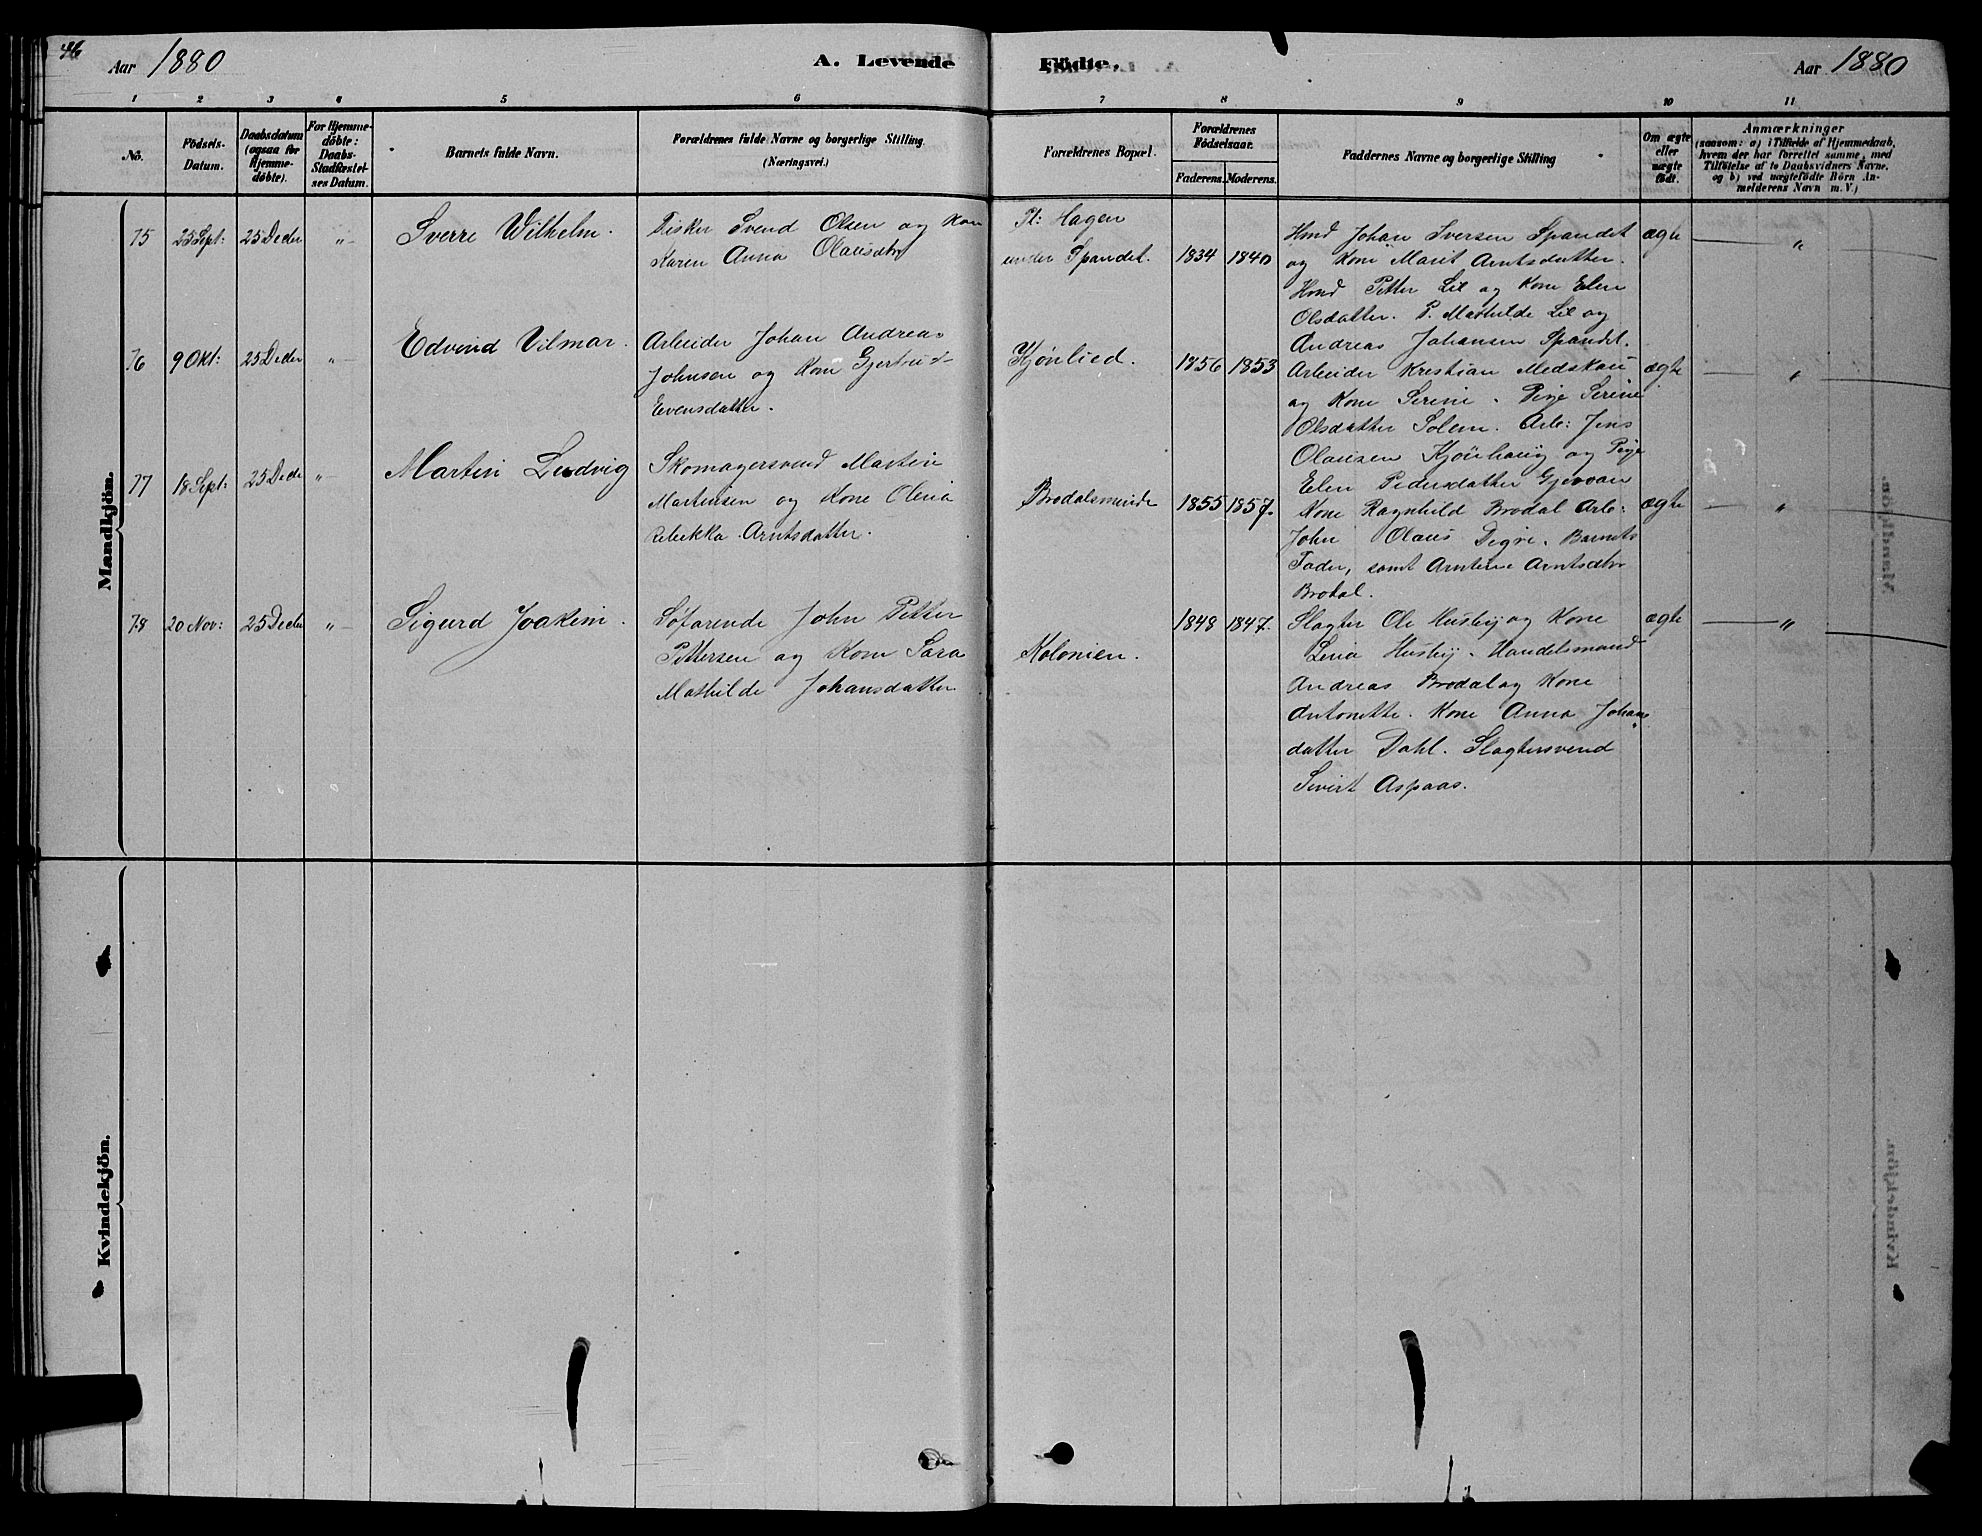 46
Aar 1880
A. Levende
Födte.
Aar 1880
1
2
3
4
5
6
7
8
9
10
11
No.
Födsels-
Datum.
Daabsdatum
(ogsaa for
Hjemme-
döbte).
For Hjemme-
döbte:
Daabs-
Stadfæstel-
ses Datum.
Barnets fulde Navn.
Forældrenes fulde Navne og borgerlige Stilling.
(Næringsvei.)
Forældrenes Bopæl.
Forældrenes
Födselsaar.
Faderens.
Moderens.
Faddernes Navne og borgerlige Stilling
Om ægte
eller
uægte
födt.
Anmærkninger
(saasom: a) i Tilfælde af Hjemmedaab,
hvem der har forrettet samme, med
Tilföielse af to Daabsvidners Navne,
og b) ved uægtefödte Börn An-
melderens Navn m.V.)
Mandkjön.
75
25 Sept:
25 Decbr
"
Sverre Wilhelm.
Fisker Svend Olsen og Kone
Karen Anna Olausdtr
Pl: Hagen
under Spandet.
1834
1840
Hmd Johan Iversen Spandet
og Kone Marit Arntsdatter.
Hmd Petter Lil og Kone Elen
Olsdatter. P. Mathilde Lil og
Andreas Johansen Spandet.
ægte
"
76
9 Okt:
25 Decbr
"
Edvend Vilmar.
Arbeider Johan Andreas
Johnsen og Kone Gjertrud
Evensdatter.
Kjönlied.
1856
1853
Arbeider Kristian Medskau
og Kone Serine. Pige Serine
Olsdatter Solem. Arb: Jens
Olausen Kjönhaug og Pige
Elen Pedersdatter Gjevvan
ægte
"
77
18 Sept:
25 Decb
"
Martin Ludvig
Skomagersvend Martin
Martinsen og Kone Olena
Rebekka Arntsdatter.
Brodalsmunde
1855
1857.
Kone Ragnhild Brodal Arb:
John Olaus Digre. Barnets
Fader, samt Arntine Arntsdtr
Brodal.
ægte
"
78
20 Nov:
25 Decbr
"
Sigurd Joakim.
Söfarende John Petter
Pettersen og Kone Sara
Mathilde Johansdatter
Kolonien.
1848
1847.
Slagter Ole Husby og Kone
Lena Husby. Handelsmand
Andreas Brodal og Kone
Antonette. Kone Anna Johans
datter Dahl. Slagtersvend
Sivert Aspaas.
ægte
"
Kvindekjön.